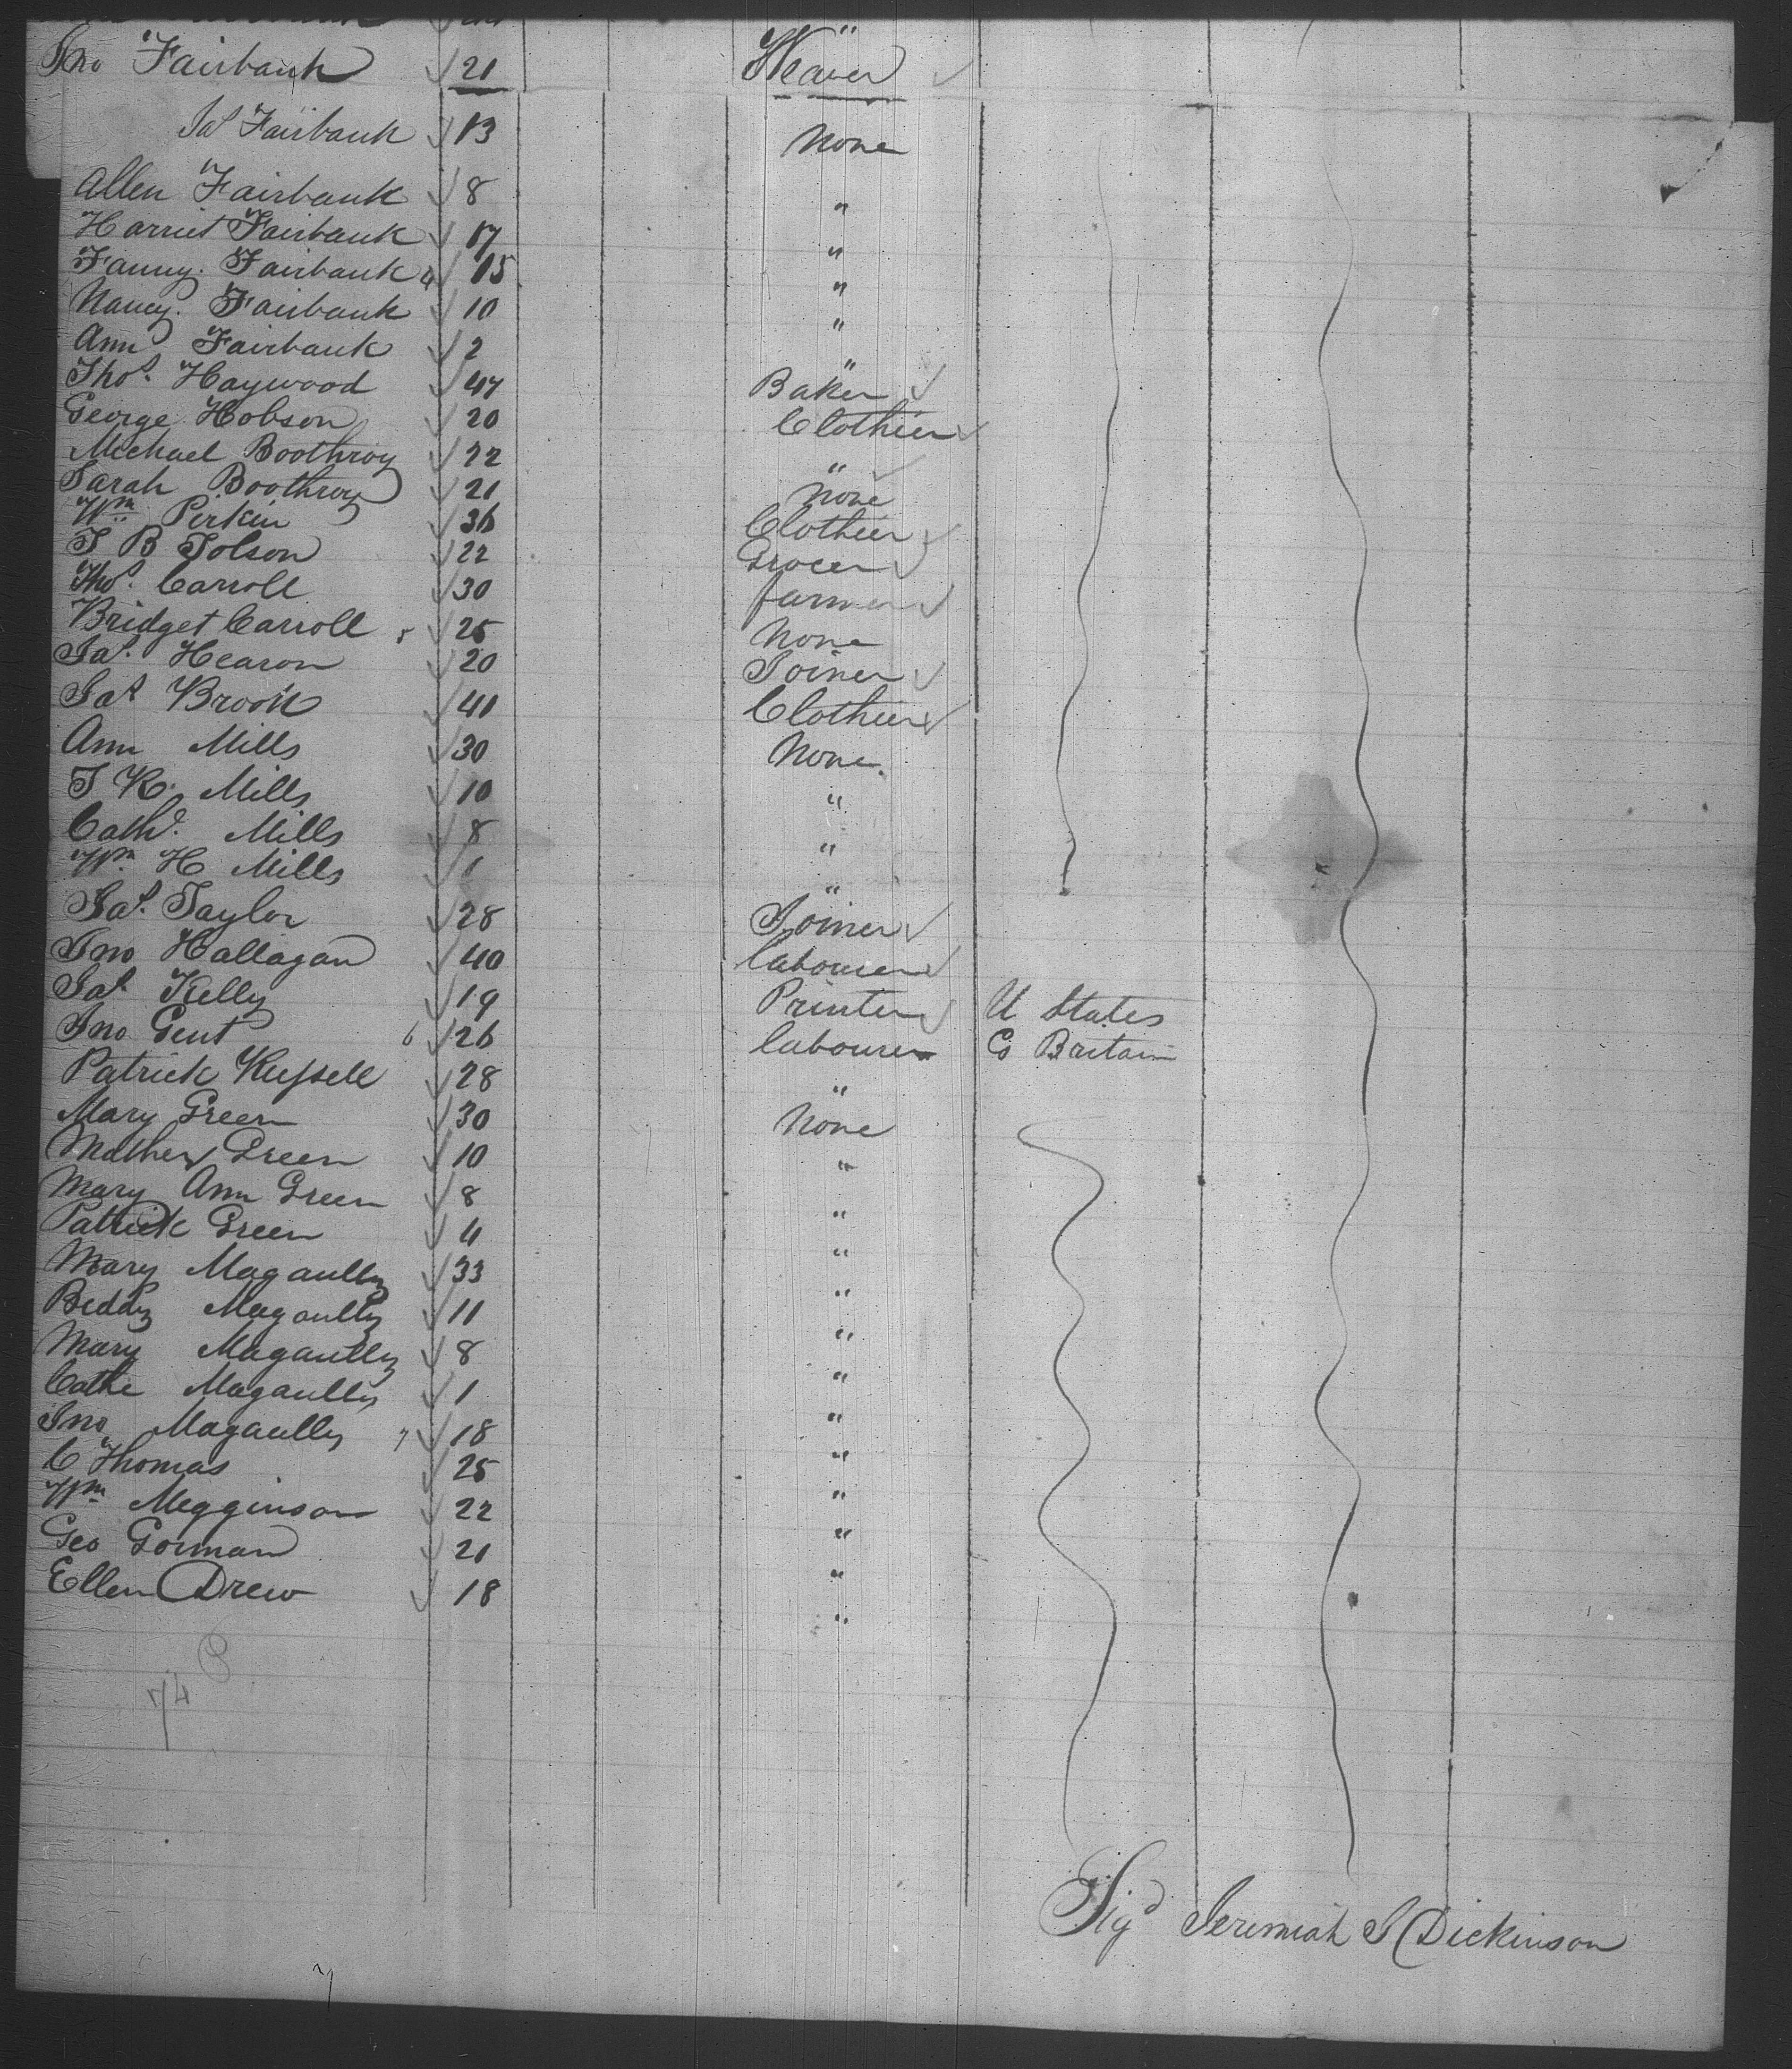 Jno Fairbank 21 Weaver
Jas Fairbank 13 None
Allen Fairbank 8 "
Harriet Fairbank 17 "
Fanny. Fairbank 4 15 "
Nancy. Fairbank 10 "
Ann Fairbank 2 "
Thos. Haywood 47 Baker
George Hobson 20 Clothier
Michael Boothroy 22 "
Sarah Boothroy 21 None
Wm Perkin 36 Clothier
J B Tolson 22 Grocer
Thos. Carroll 30 farmer
Bridget Carroll 5 25 None
Jas. Hearon 20 Joiner
Jas Brook 41 Clothier
Ann Mills 30 None
J K. Mills 10 "
Cathe. Mills 8 "
Wm. H Mills 1 "
Jas. Taylor 28 Joiner
Jno Hallagan 40 labourer
Jas Kelly 19 Printer U States
Jno Gent 6 26 labourer G Britain
Patrick 28 "
Mary Green 30 None
Mathew Green 10 "
Mary Ann Green 8 "
Patrick Green 4 "
Mary Magaully 33 "
Biddy Magaully 11 "
Mary Magaully 8 "
Cathe Magaully 1 "
Jno Magaully 7 18 "
C Thomas 25 "
Wm Megginson 22 "
Geo Gorman 21 "
Ellen Drew 18 "
74
Sigd Jeremiah S Dickinson